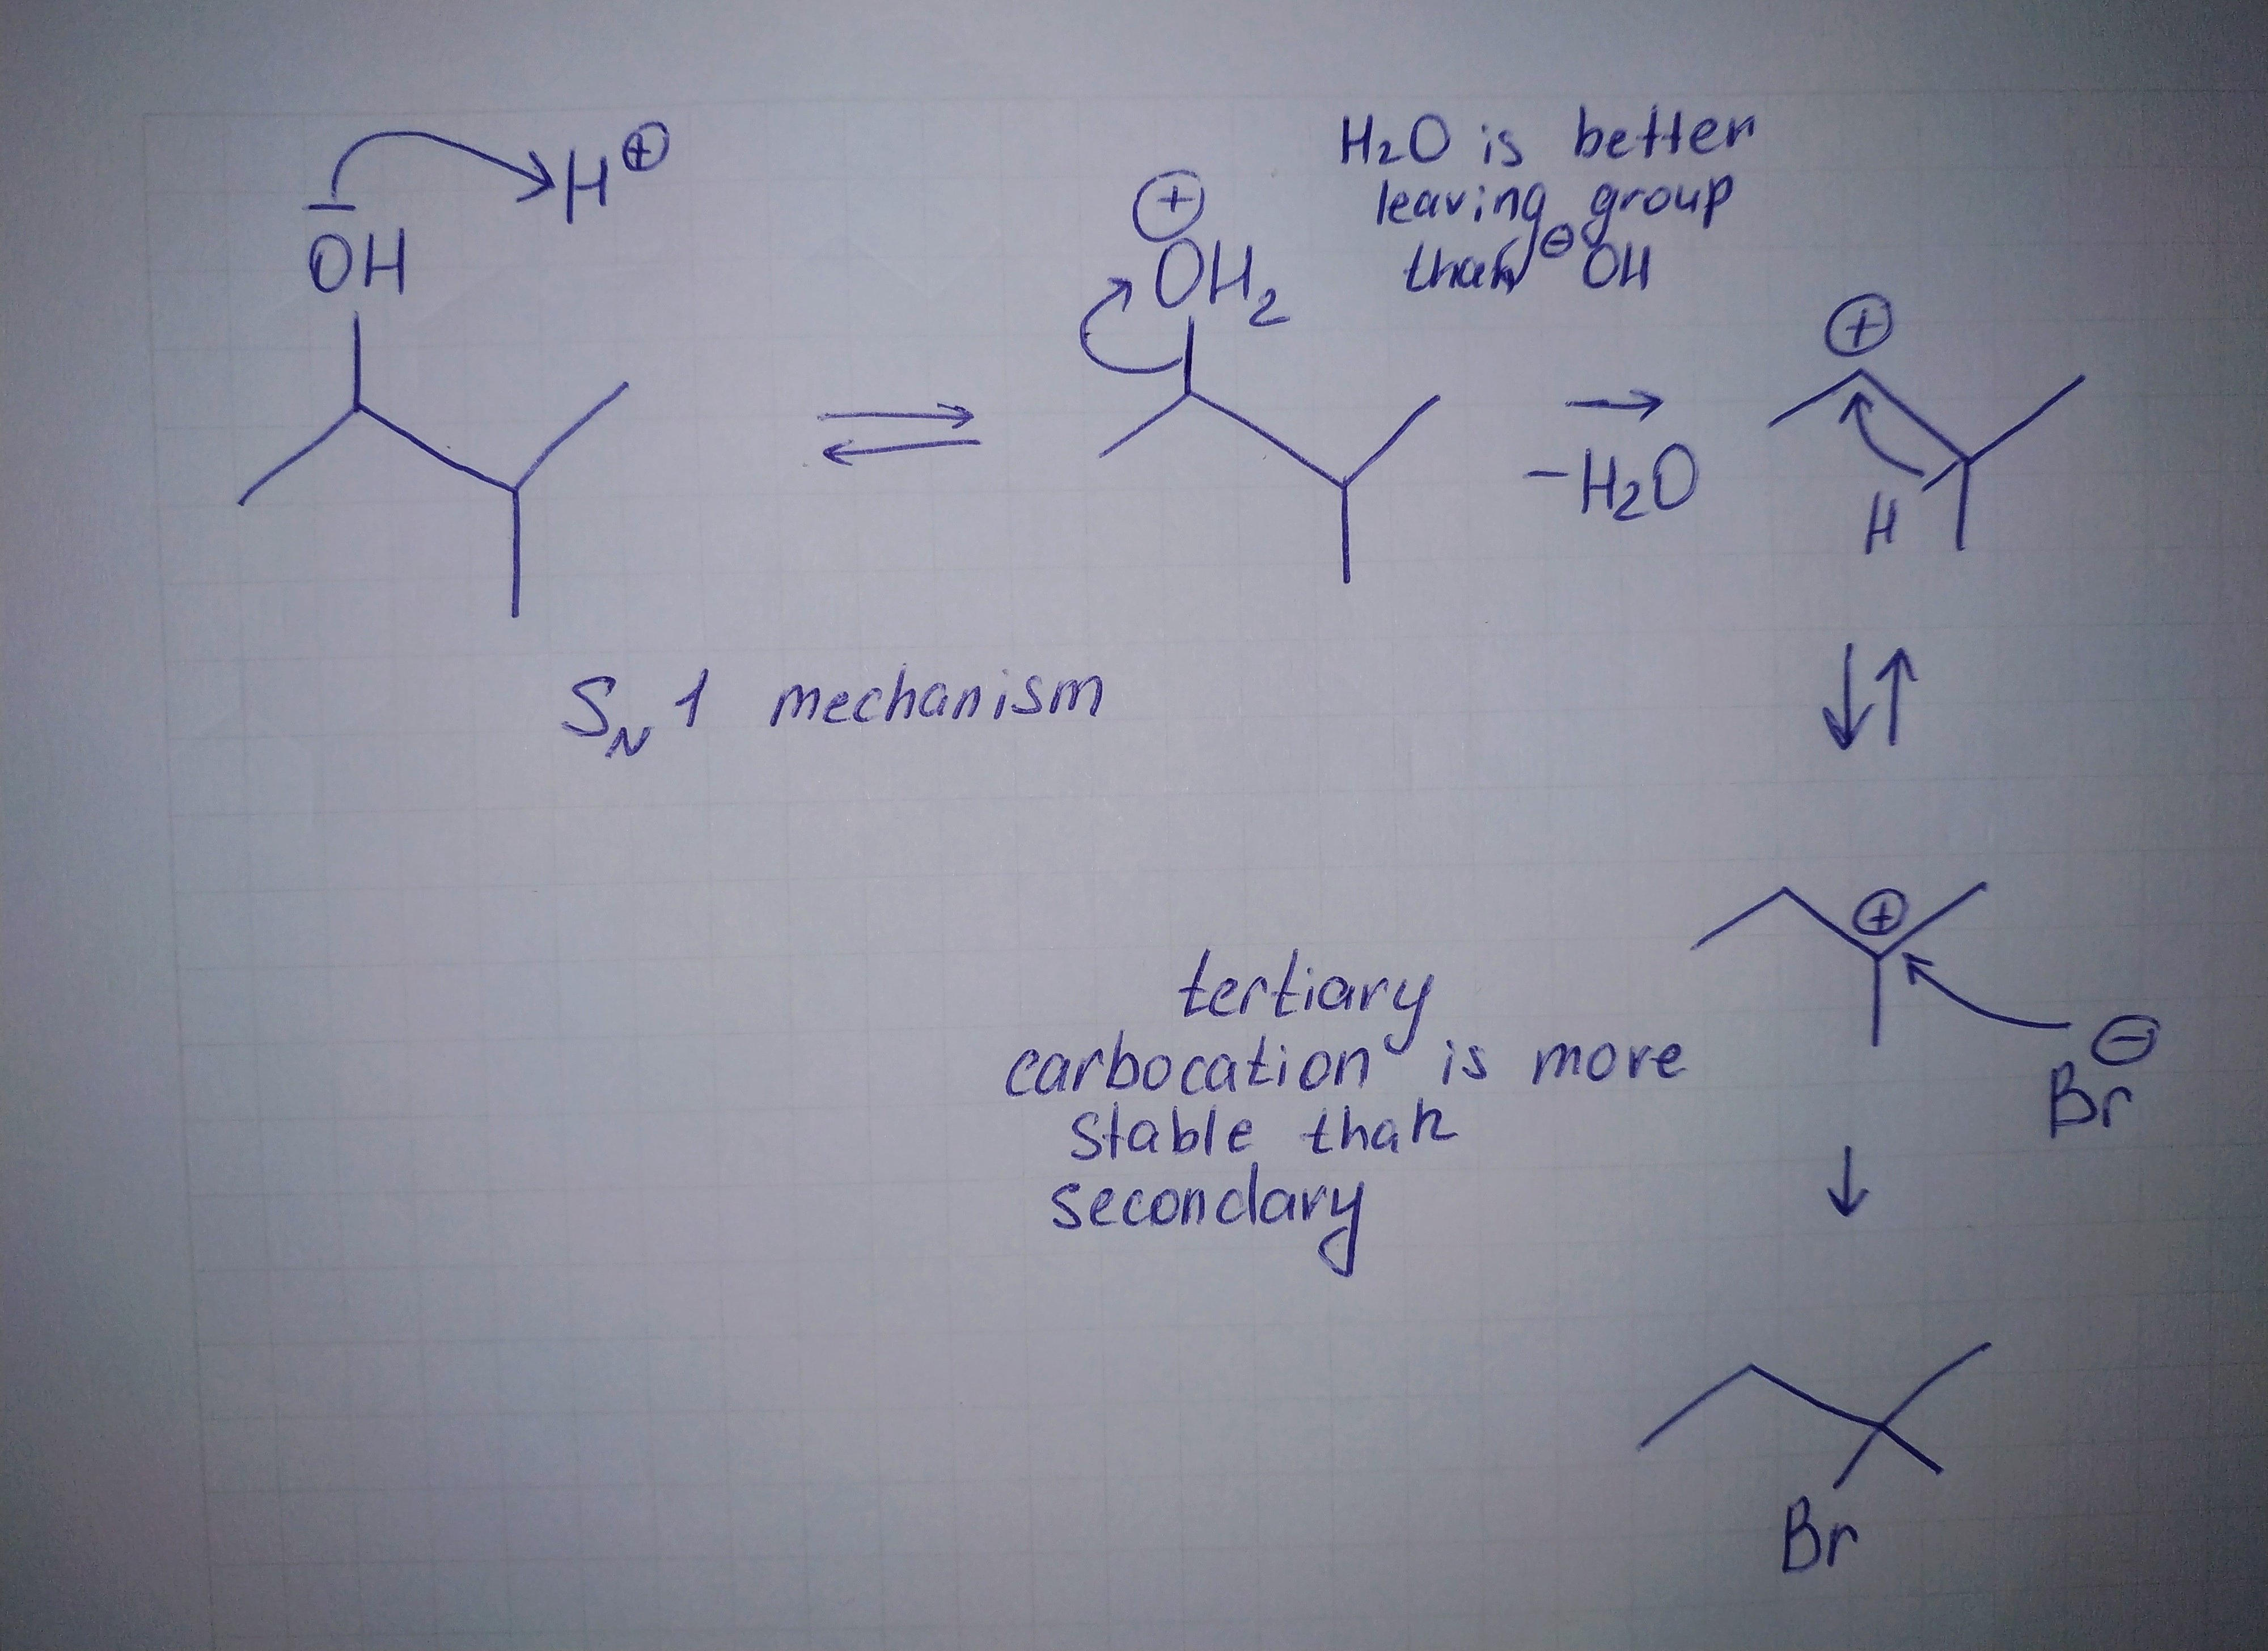 H⊕
OH
⊕
OH₂
H₂O is better
leaving group
than ⊖OH
-H₂O
⊕
H
S_N 1 mechanism
⊕
⊖
Br
tertiary
carbocation is more
stable than
secondary
Br